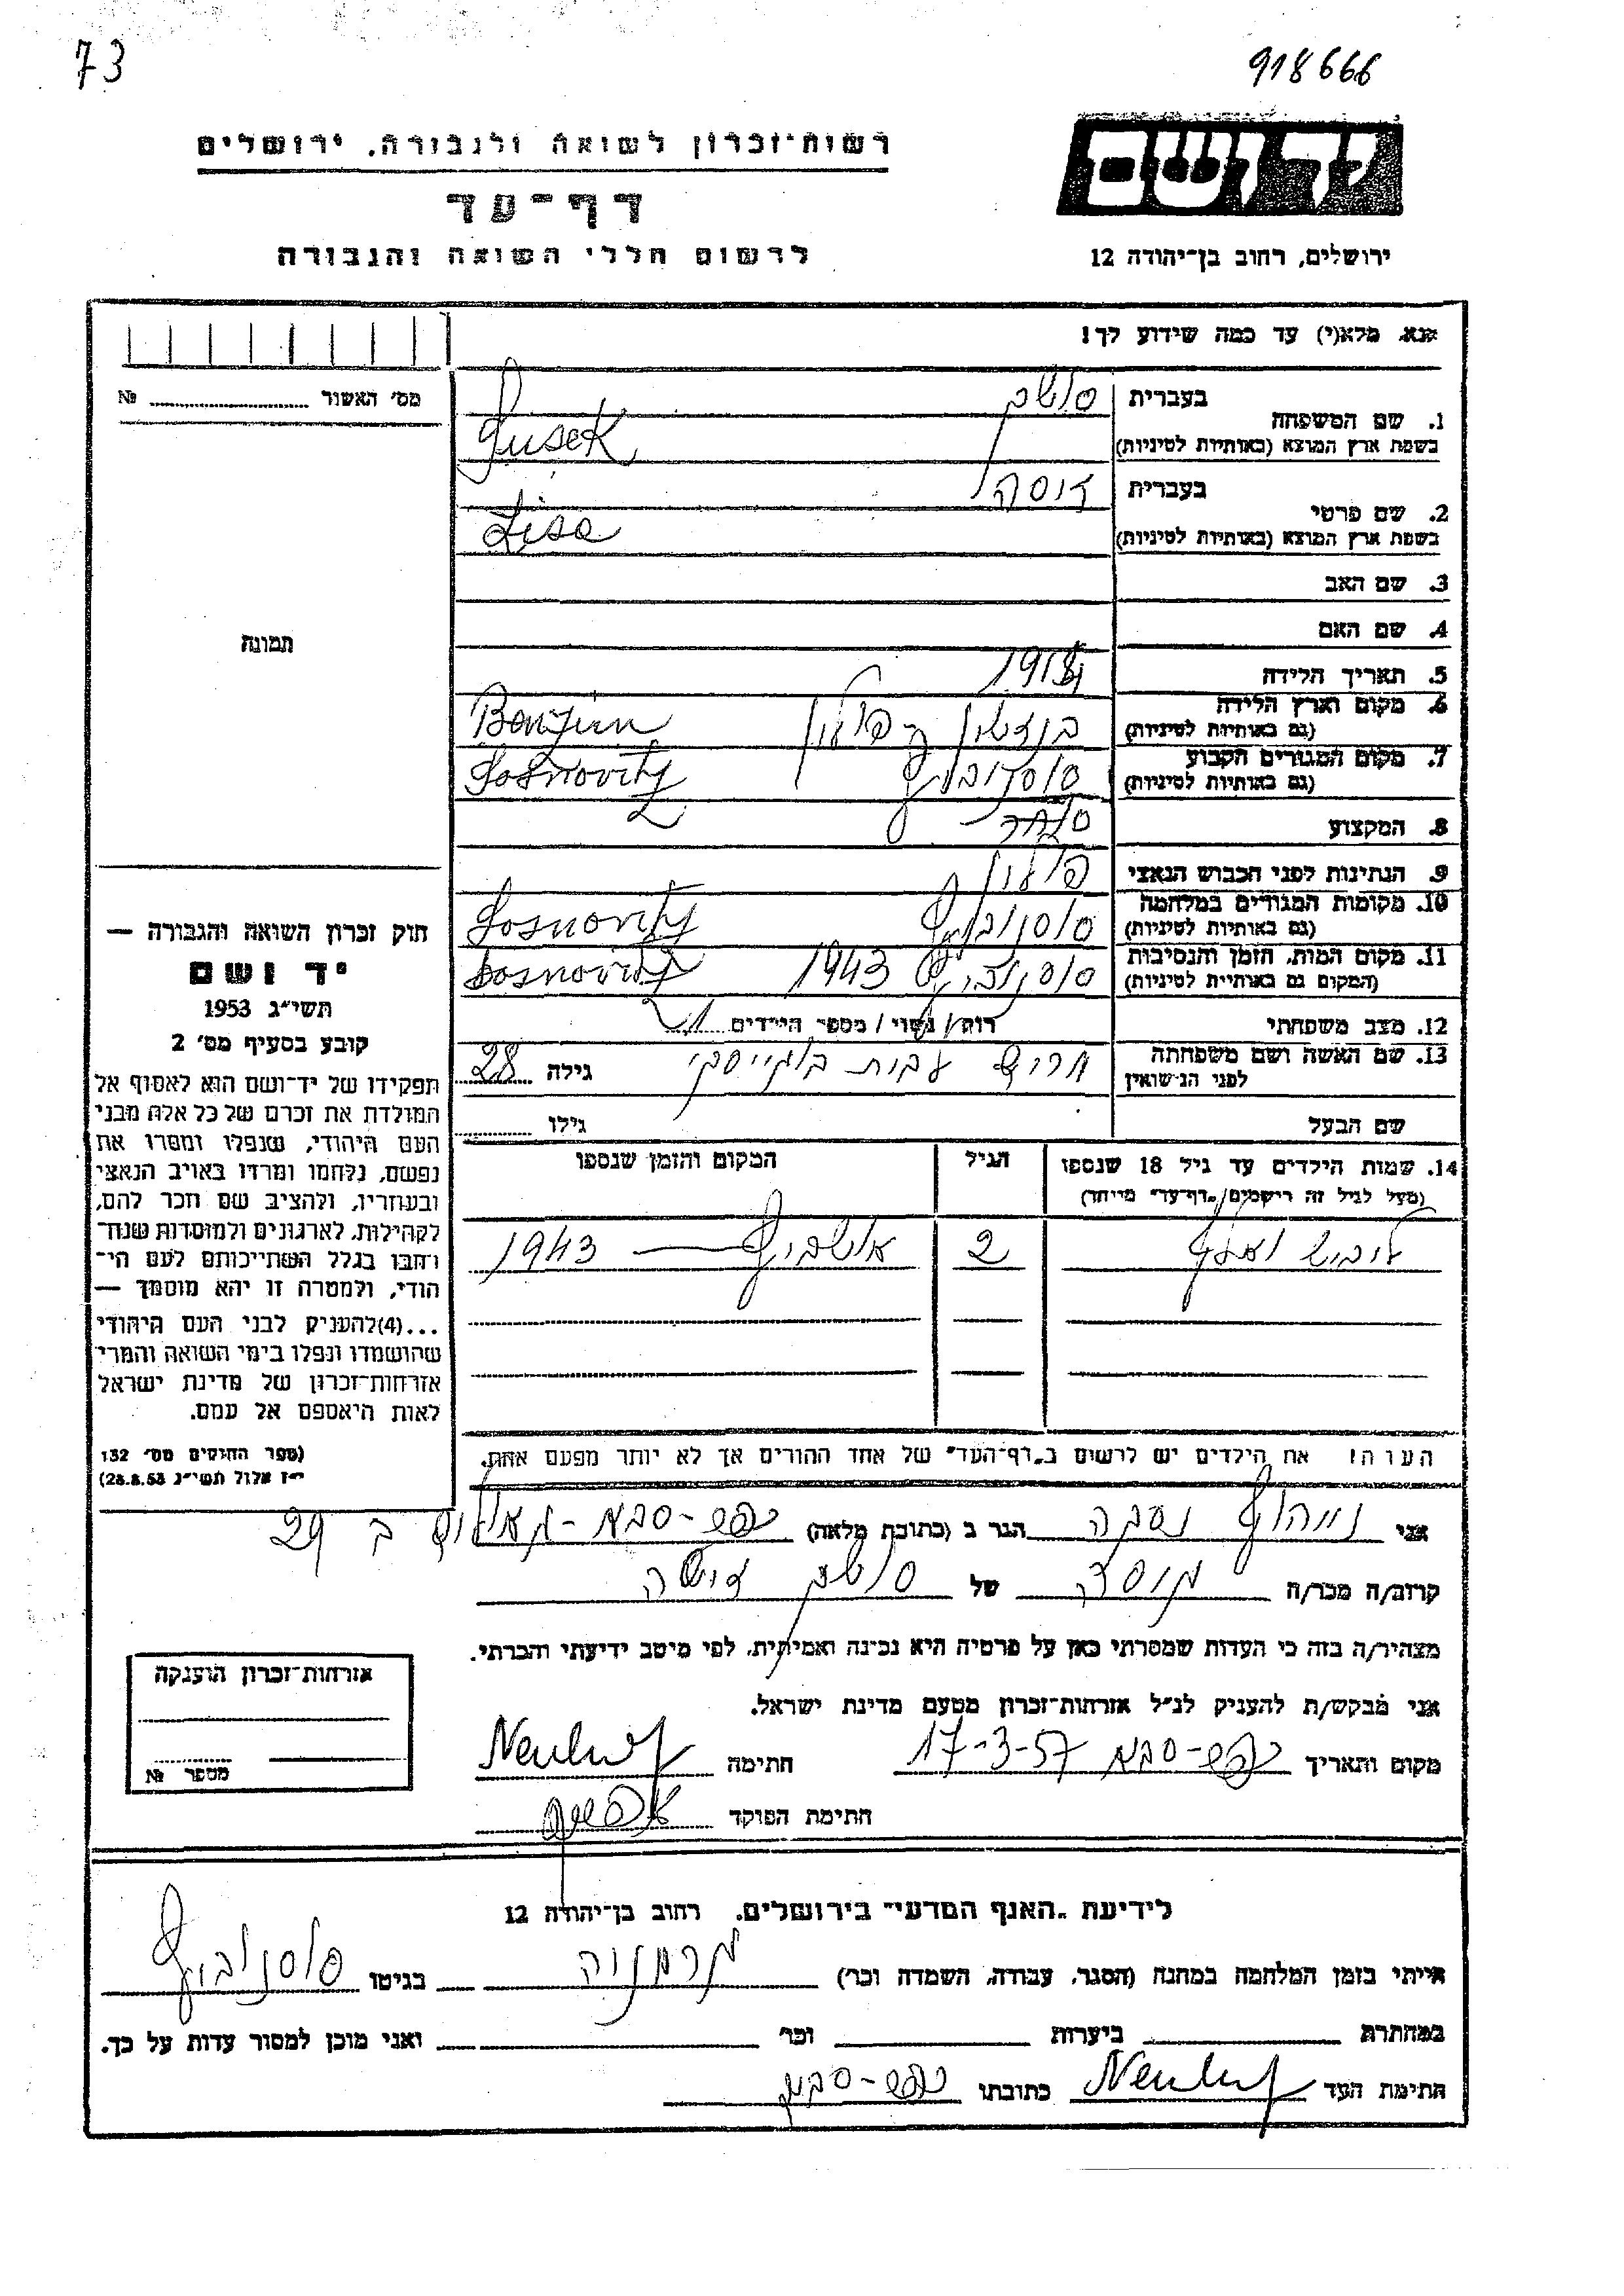 73
918666
רשות־זכרון לשואה ולגבורה, ירושלים
דף־עד
לרשום חללי השואה והגבורה
יד ושם
ירושלים, רחוב בן־יהודה 12
נא מלא(י) עד כמה שידוע לך!
מס׳ האשור № 
1. שם המשפחה
בעברית
בשפת ארץ המוצא (באותיות לטיניות)
2. שם פרטי
בעברית
בשפת ארץ המוצא (באותיות לטיניות) Lisa
3. שם האב
4. שם האם
תמונה
5. תאריך הלידה
6. מקום וארץ הלידה
(גם באותיות לטיניות)
7. מקום המגורים הקבוע
(גם באותיות לטיניות) Sosnovitz
8. המקצוע סוחר
9. הנתינות לפני הכבוש הנאצי פולין
10. מקומות המגורים במלחמה
(גם באותיות לטיניות) סוסנוביץ Sosnovitz
11. מקום המות, הזמן והנסיבות
(המקום גם באותיות לטיניות) סוסנוביץ 1943 Sosnovitz
12. מצב משפחתי רווק / נשוי / מספר הילדים
13. שם האשה ושם משפחתה
לפני הנישואין גילה 28
שם הבעל גילו
14. שמות הילדים עד גיל 18 שנספו
(מעל לגיל זה רישמים/„דף־עד״ מיוחד)
הגיל
המקום והזמן שנספו
2 אושביץ — 1943
הערה! את הילדים יש לרשום ב„דף־העד״ של אחד ההורים אך לא יותר מפעם אחת.
חוק זכרון השואה והגבורה —
יד ושם
תשי״ג 1953
קובע בסעיף מס׳ 2
תפקידו של יד־ושם הוא לאסוף אל
המולדת את זכרם של כל אלה מבני
העם היהודי, שנפלו ומסרו את
נפשם, נלחמו ומרדו באויב הנאצי
ובעוזריו, ולהציב שם וזכר להם,
לקהילות, לארגונים ולמוסדות שנח־
רבו בגלל השתייכותם לעם הי־
הודי, ולמטרה זו יהא מוסמך —
...(4)להעניק לבני העם היהודי
שהושמדו ונפלו בימי השואה והמרי
אזרחות־זכרון של מדינת ישראל
לאות היאספם אל עמם.
(ספר החוקים מס׳ 132
י״ז אלול תשי״ג 28.8.53)
אני הגר ב (כתובת מלאה) כפר-סבא 29
קרוב/ה מכר/ה של
מצהיר/ה בזה כי העדות שמסרתי כאן על פרטיה היא נכונה ואמיתית, לפי מיטב ידיעתי והכרתי.
אני מבקש/ת להעניק לנ״ל אזרחות־זכרון מטעם מדינת ישראל.
מקום ותאריך כפר-סבא 17-3-57 חתימה
חתימת הפוקד
אזרחות־זכרון הוענקה
מספר №
לידיעת „האגף המדעי״ בירושלים, רחוב בן־יהודה 12
הייתי בזמן המלחמה במחנה (הסגר, עבודה, השמדה וכר׳) בגיטו סוסנוביץ
במחתרת ביערות וכר׳ ואני מוכן למסור עדות על כך.
חתימת העד כתובתו כפר-סבא